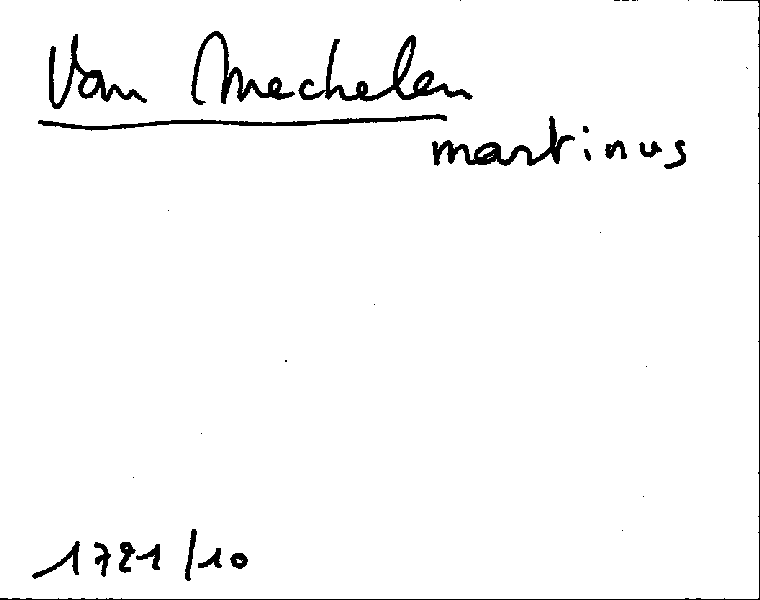 Van Mechelen
martinus
1721/10